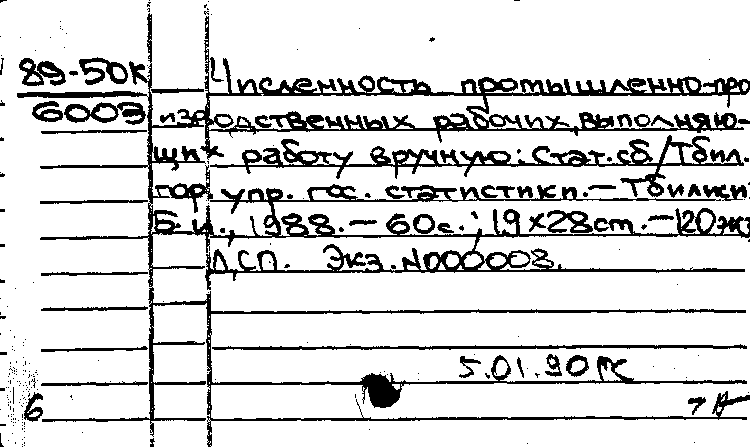 89-50К
6003
Численность промышленно-про
изводственных рабочих, выполняю-
щих работу вручную: Стат. сб/Тбил.
гор. упр. гос. статистики. – Тбилиси:
Б.и., 1988. – 60с.; 19×28cm. – 120 экз
ДСП. Экз. N000003.
5.01.90
6